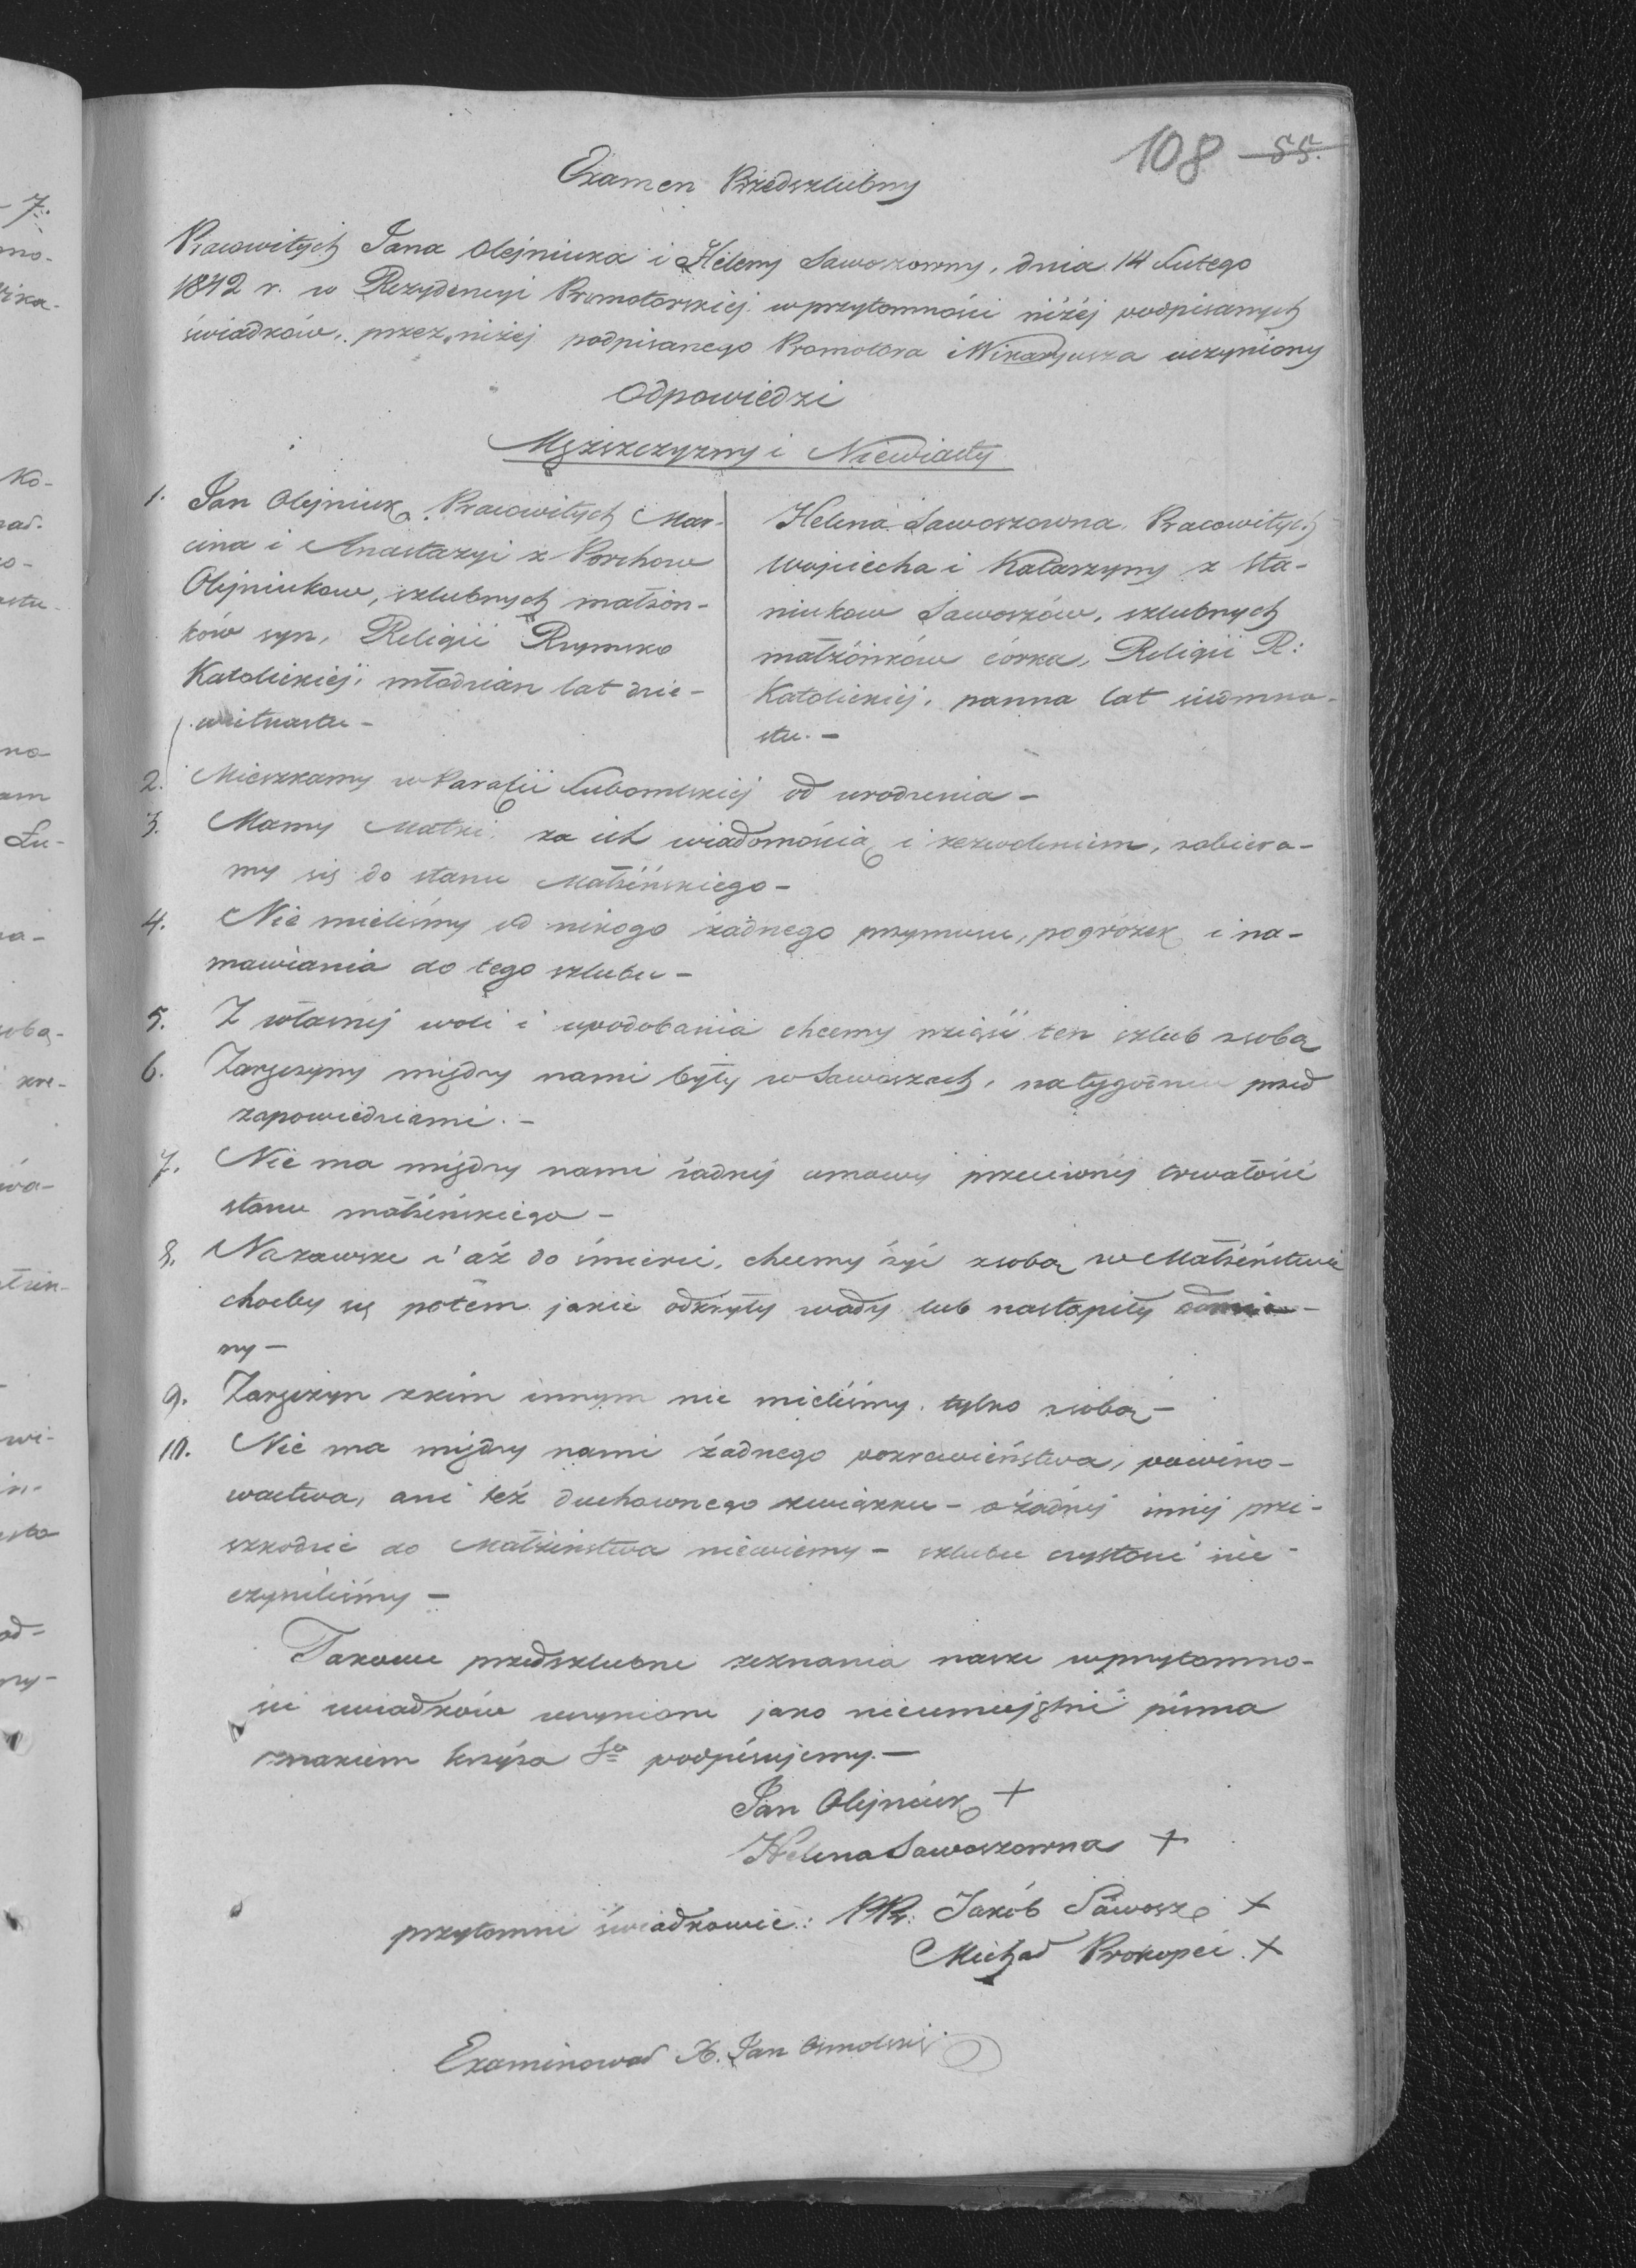 108 55.
Examen Przedszlubny
Pracowitych Jana Olejniuka i Heleny Sawoszowny, dnia 14 Lutego
1842 r. w Rezydencyi Promotorskiej w przytomności niżéj podpisanych
świadków, przez niżéj podpisanego Promotora i Wikaryusza uczyniony
Odpowiedzi
Męższczyzny i Niewiasty
1. Jan Olejniuk, Pracowitych Mar-
cina i Anastazyi z Porchow
Olejniukow, szlubnych małżon-
ków syn, Religii Rzymsko
Katolickiéj, młodzian lat dzie-
więtnastu -
Helena Sawoszowna, Pracowitych
Wojciecha i Katarzyny z Sta-
niukow Sawoszów, szlubnych
małżónków córka, Religii R:
Katolickiéj, panna lat siedmna-
stu. -
2. Mieszkamy w Parafii Lubomlskiéj od urodzenia -
3. Mamy Matki, za ich wiadomością i zezwoleniem, zabiera-
my się do stanu Małżeńskiego -
4. Nie mieliśmy od nikogo żadnego przymusu, pogróżek i na-
mawiania do tego szlubu -
5. Z własnéj woli i upodobania chcemy wziąść ten szlub z sobą
6. Zaręczyny między nami były w Sawoszach, na tygodniu przed
zapowiedziami. -
7. Nie ma między nami żadnéj umowy przeciwnéj trwałości
stanu małżeńskiego -
8. Na zawsze i aż do śmierci, chcemy żyć z sobą w Małżeństwie
choćby się potém jakie odkryły wady lub nastąpiły odmia-
ny -
9. Zaręczyn z kim innym nie mieliśmy, tylko z sobą -
10. Nie ma między nami żadnego pokrewieństwa, powino-
wactwa, ani też duchownego związku - o żadnéj innéj prze-
szkodzie do Małżeństwa nie wiemy - szlubu czystości nie
czyniliśmy -
Takowe przedszlubne zeznania nasze w przytomno-
ści świadków uczynione jako nieumiejętni pisma
znakiem krzyża Sgo podpisujemy. -
Jan Olejniuk +
Helena Sawoszowna +
przytomni świadkowie: Jakób Sawosz +
Michał Prokopci +
Examinował X. Jan Osmolski